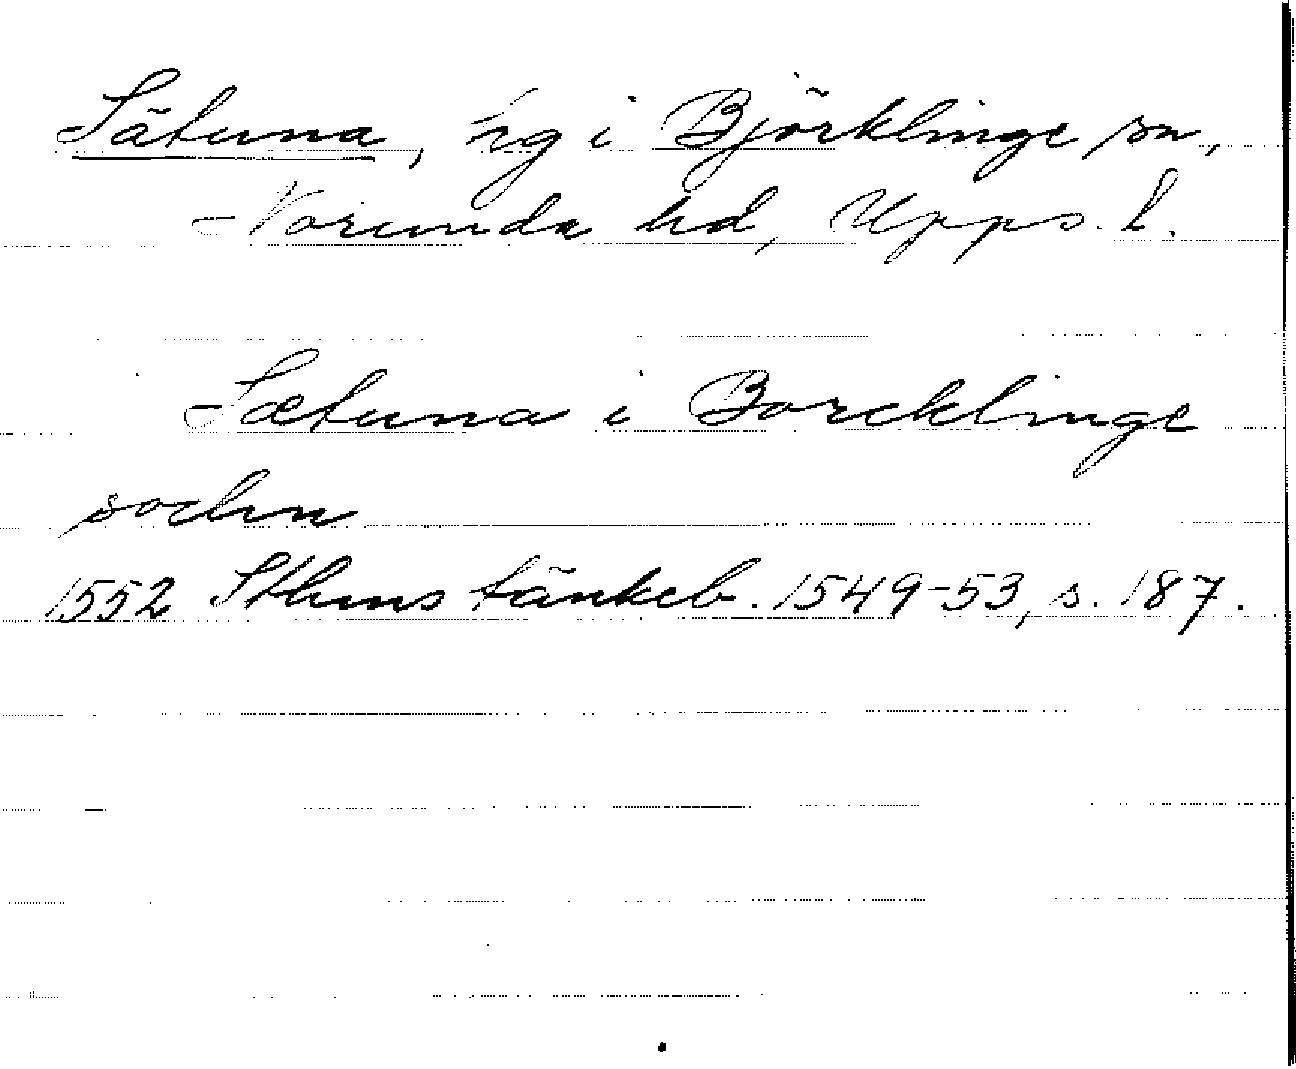 Sätuna, hg i Björklinge sn,
Norunda hd, Upps. l.
Sætuna i Borcklinge
sochn
1552 Sthms tänkeb. 1549-53, s. 187.